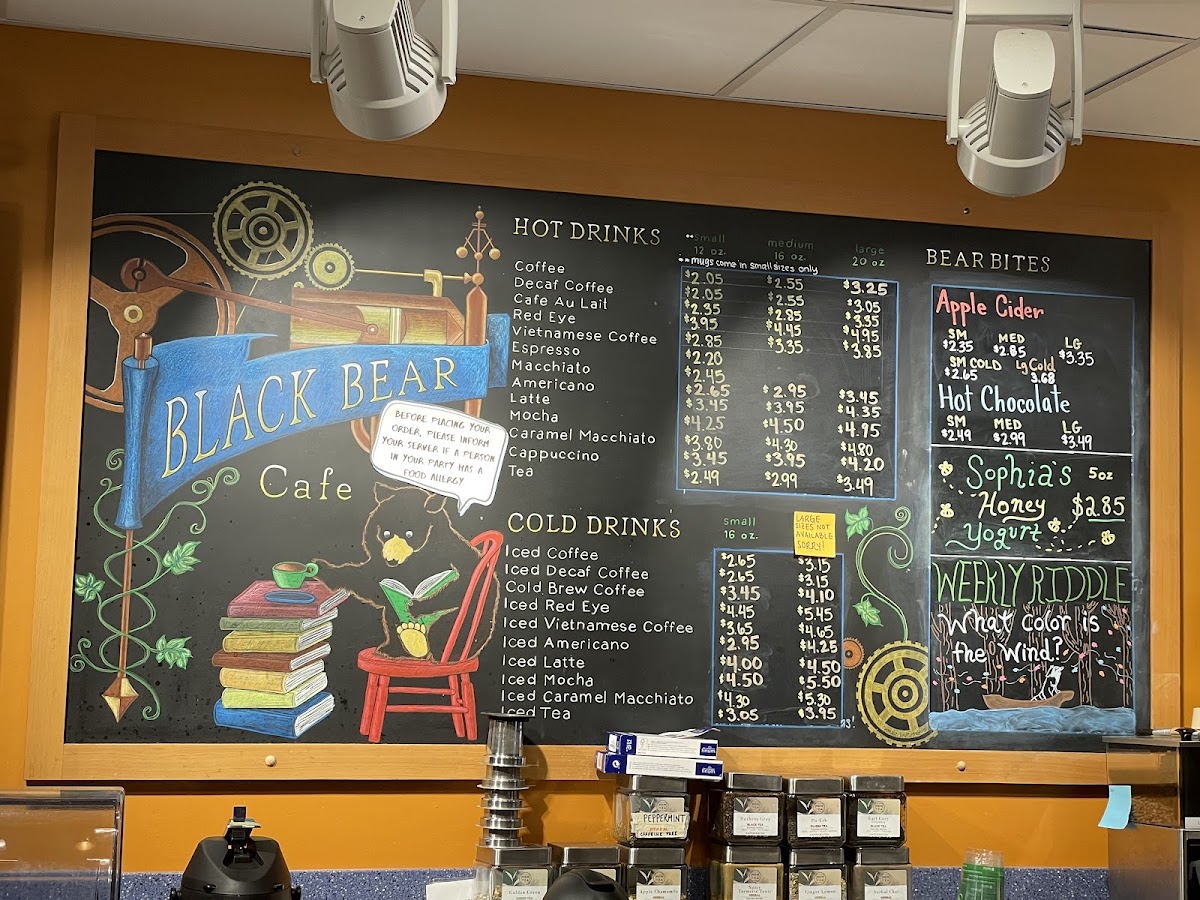 BLACK BEAR
Cafe
BEFORE PLACING YOUR
ORDER, PLEASE INFORM
YOUR SERVER IF A PERSON
IN YOUR PARTY HAS A
FOOD ALLERGY
HOT DRINKS
**small medium large
12 oz. 16 oz. 20 oz
**mugs come in small sizes only
Coffee $2.05 $2.55 $3.25
Decaf Coffee $2.05 $2.55 $3.05
Cafe Au Lait $2.35 $2.85 $3.35
Red Eye $3.95 $4.45 $4.95
Vietnamese Coffee $2.85 $3.35 $3.85
Espresso $2.20
Macchiato $2.45
Americano $2.65 $2.95 $3.45
Latte $3.45 $3.95 $4.35
Mocha $4.25 $4.50 $4.95
Caramel Macchiato $3.80 $4.30 $4.80
Cappuccino $3.45 $3.95 $4.20
Tea $2.49 $2.99 $3.49
COLD DRINKS
small
16 oz.
LARGE
SIZES NOT
AVAILABLE
SORRY!
Iced Coffee $2.65 $3.15
Iced Decaf Coffee $2.65 $3.15
Cold Brew Coffee $3.45 $4.10
Iced Red Eye $4.45 $5.45
Iced Vietnamese Coffee $3.65 $4.65
Iced Americano $2.95 $4.25
Iced Latte $4.00 $4.50
Iced Mocha $4.50 $5.50
Iced Caramel Macchiato $4.30 $5.30
Iced Tea $3.05 $3.95
BEAR BITES
Apple Cider
SM MED LG
$2.35 $2.85 $3.35
SM COLD Lg Cold
$2.65 3.68
Hot Chocolate
SM MED LG
$2.49 $2.99 $3.49
Sophia's 5oz
Honey $2.85
Yogurt
WEEKLY RIDDLE
What color is
the wind?
PEPPERMINT
CAFFEINE FREE
BLACK TEA
Earl Grey
Golden Green
Apple Chamomile
Turmeric Tonic
Ginger Lemon